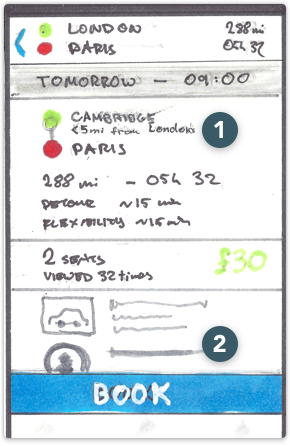 LONDON 288 mi
PARIS 05h 32
TOMORROW – 09:00
CAMBRIDGE
<5mi from London
1
PARIS
288 mi – 05h 32
DETOUR ~15 min
FLEXIBILITY ~15 min
2 SEATS
£30
VIEWED 32 times
2
BOOK